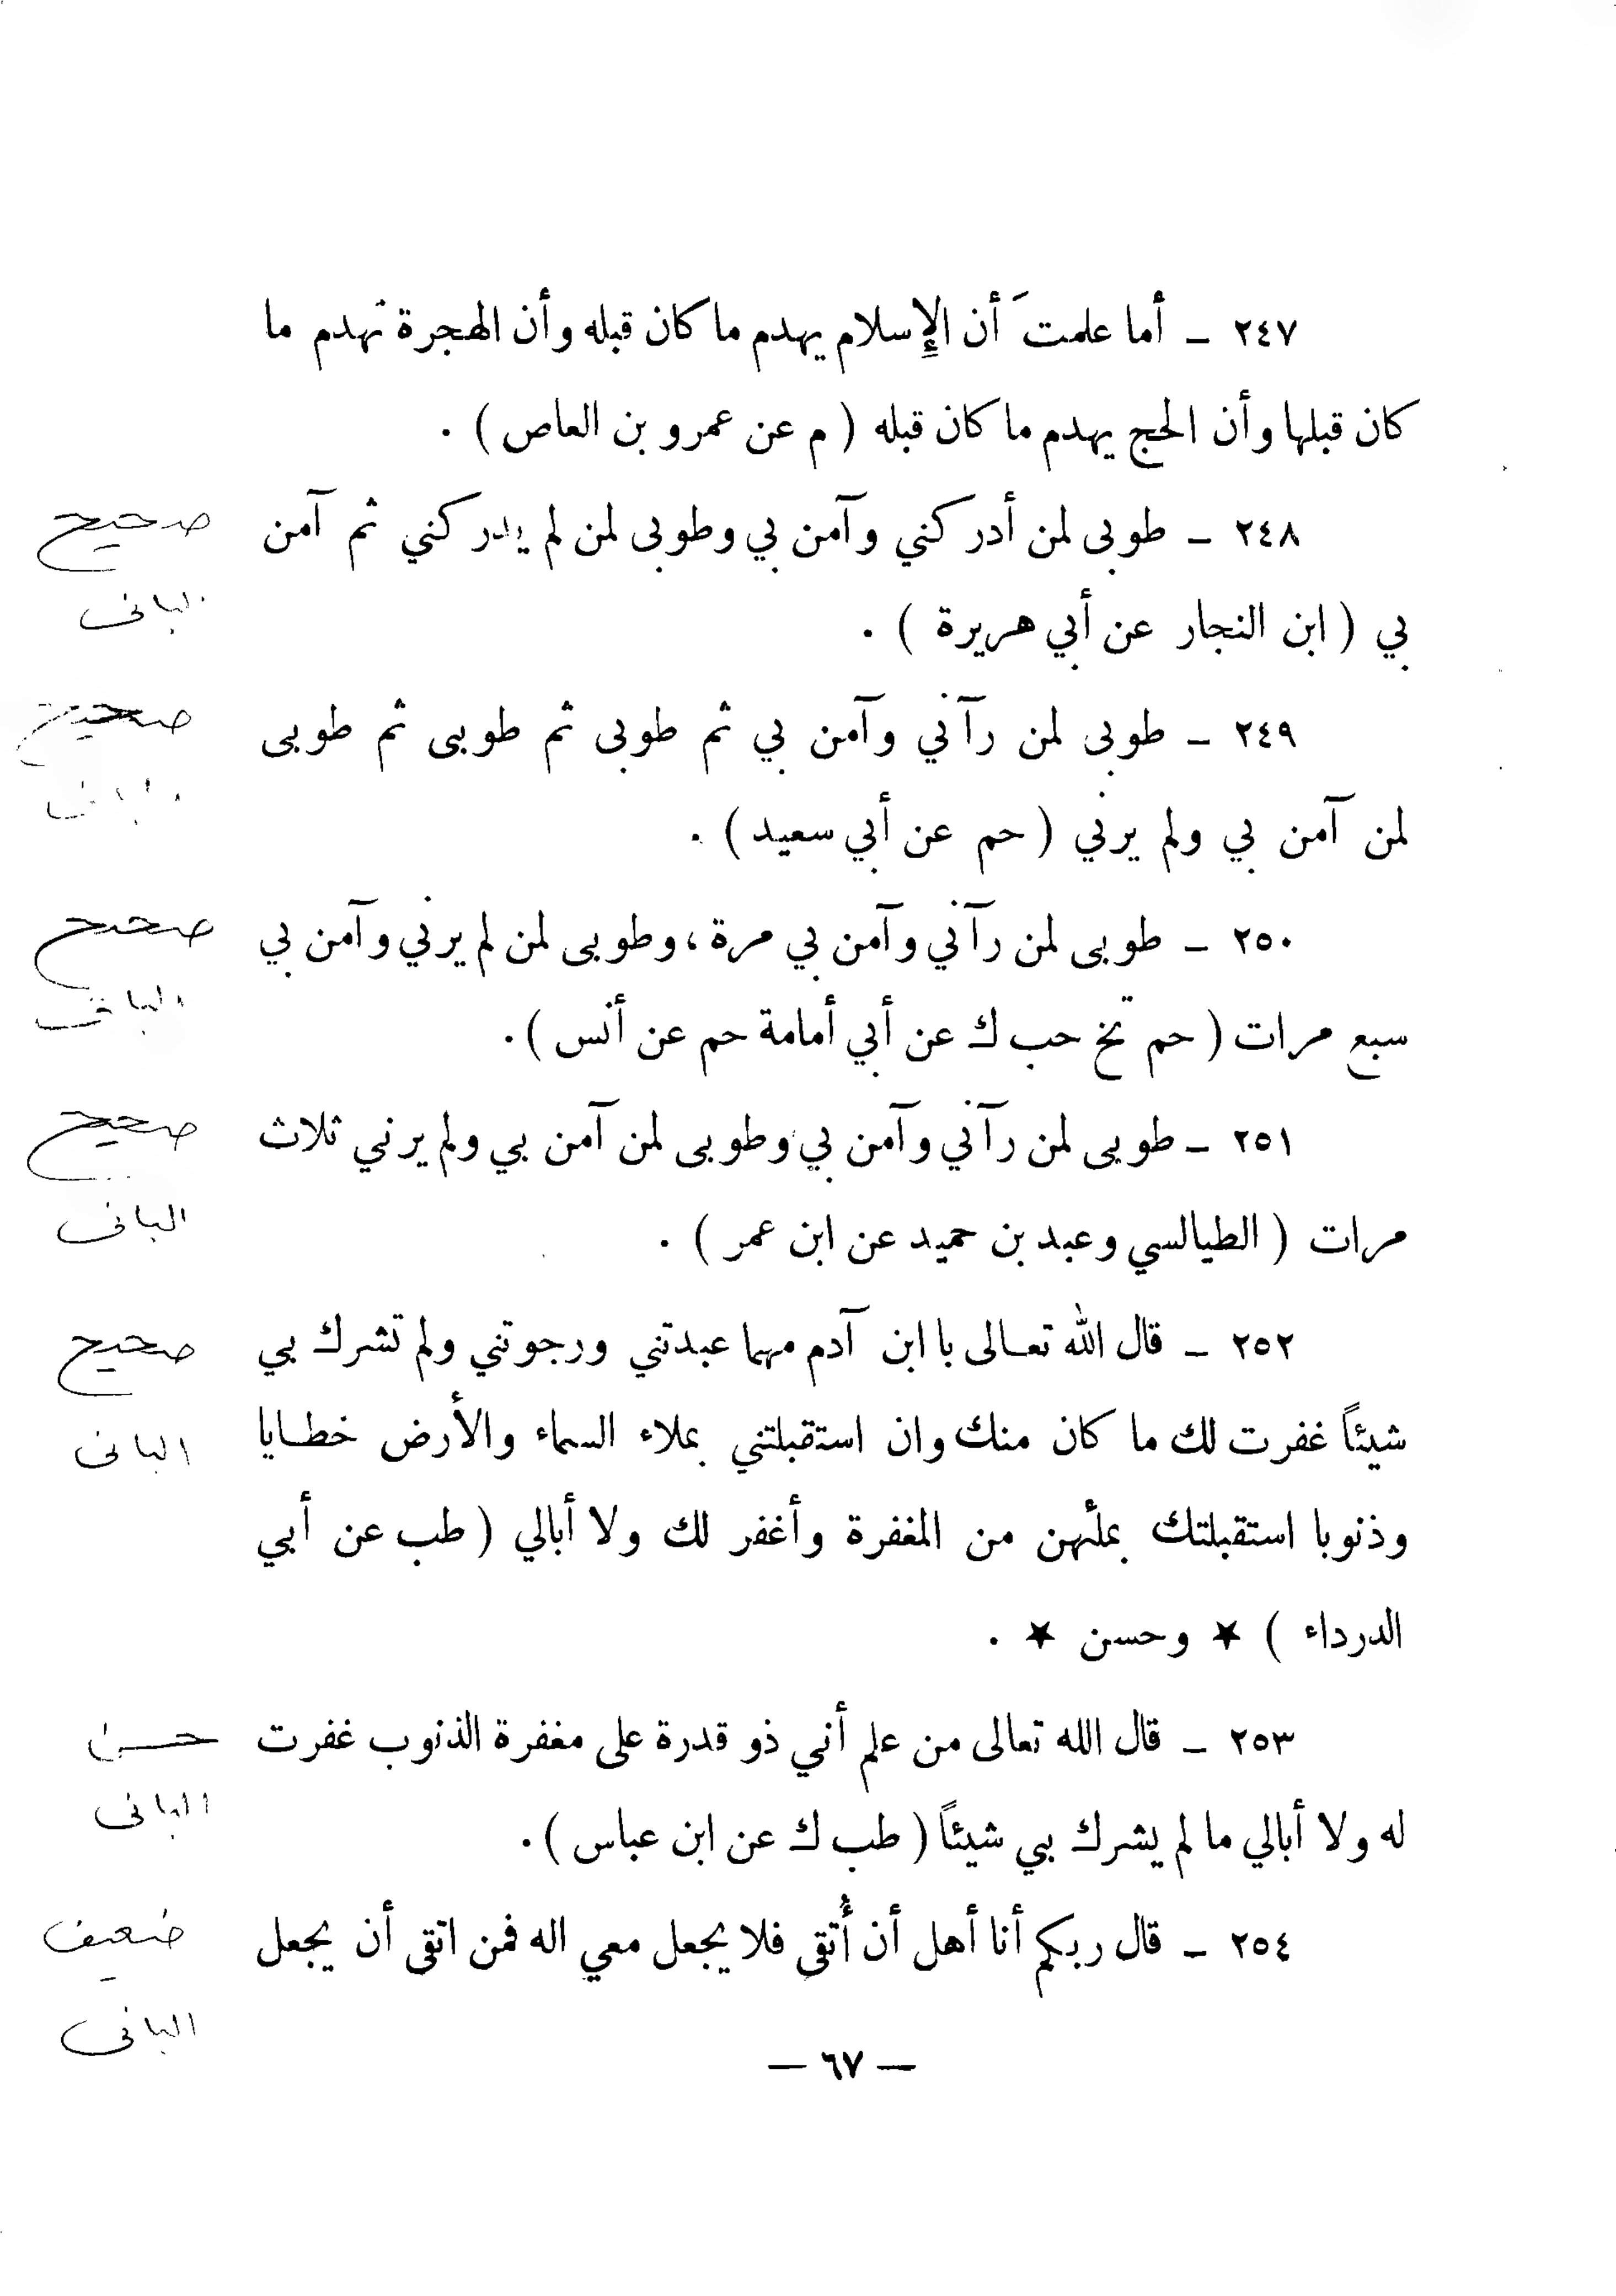 ٢٤٧ ـ أما علمتَ أن الإسلام يهدم ما كان قبله وأن الهجرة تهدم ما
كان قبلها وأن الحج يهدم ما كان قبله ( م عن عمرو بن العاص ) .
٢٤٨ ـ طوبى لمن أدركني وآمن بي وطوبى لمن لم يدركني ثم آمن
صحيح
البانى
بي ( ابن النجار عن أبي هريرة ) .
٢٤٩ ـ طوبى لمن رآني وآمن بي ثم طوبى ثم طوبى ثم طوبى
صحيح
البانى
لمن آمن بي ولم يرني ( حم عن أبي سعيد ) .
٢٥٠ ـ طوبى لمن رآني وآمن بي مرة ، وطوبى لمن لم يرني وآمن بي
صحيح
البانى
سبع مرات ( حم تخ حب ك عن أبي أمامة حم عن أنس ) .
٢٥١ ـ طوبى لمن رآني وآمن بي وطوبى لمن آمن بي ولم يرني ثلاث
صحيح
البانى
مرات ( الطيالسي وعبد بن حميد عن ابن عمر ) .
٢٥٢ ـ قال الله تعـالى با ابن آدم مهما عبدتني ورجوتني ولم تشرك بي
صحيح
شيئاً غفرت لك ما كان منك وان استقبلتني بملاء السماء والأرض خطـايا
البانى
وذنوبا استقبلتك بملئهن من المغفرة وأغفر لك ولا أبالي ( طب عن أبي
الدرداء ) ★ وحسن ★ .
٢٥٣ ـ قال الله تعالى من علم أني ذو قدرة على مغفرة الذنوب غفرت
حسن
البانى
له ولا أبالي ما لم يشرك بي شيئاً ( طب ك عن ابن عباس ) .
٢٥٤ ـ قال ربكم أنا أهل أن أُتقى فلا يجعل معي اله فمن اتقى أن يجعل
ضعيف
البانى
— ٦٧ —